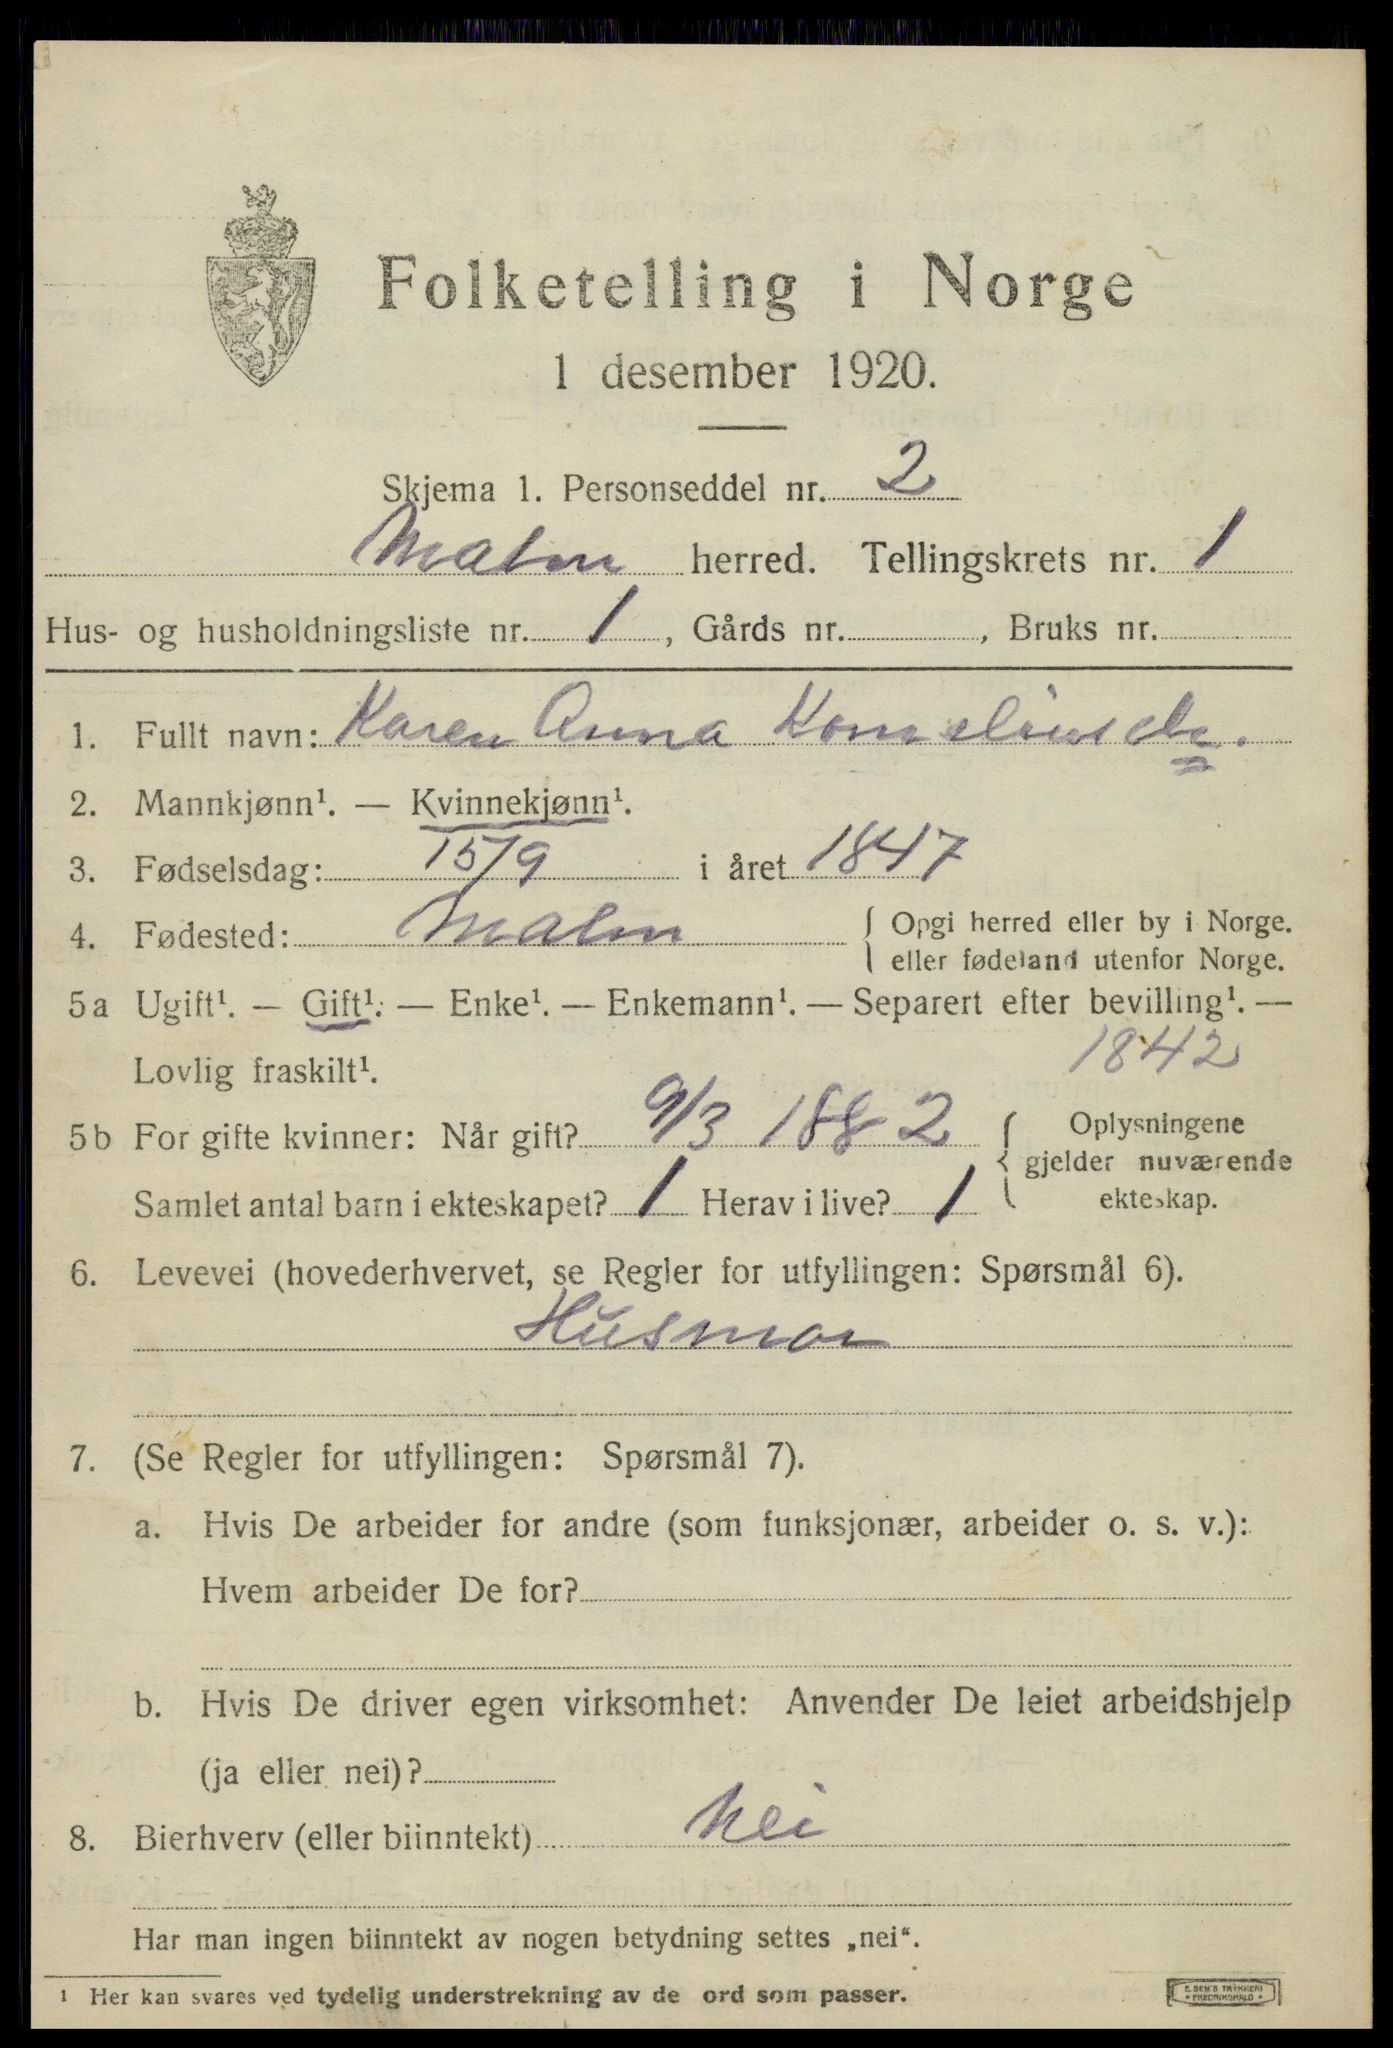 Folketelling i Norge
1 desember 1920.
Skjema 1. Personseddel nr. 2
Malm herred. Tellingskrets nr. 1
Hus- og husholdningsliste nr. 1, Gårds nr. , Bruks nr.
1. Fullt navn: Karen Anna Korneliusdr.
2. Mannkjønn¹. — Kvinnekjønn¹.
3. Fødselsdag: 15/9 i året 1847
4. Fødested: Malm { Opgi herred eller by i Norge.
eller fødeland utenfor Norge.
5a Ugift¹. — Gift¹. — Enke¹. — Enkemann¹. — Separert efter bevilling¹. —
Lovlig fraskilt¹. 1842
5b For gifte kvinner: Når gift? 9/3 1882 { Oplysningene
gjelder nuværende
Samlet antal barn i ekteskapet? 1 Herav i live? 1 ekteskap.
6. Levevei (hovederhvervet, se Regler for utfyllingen: Spørsmål 6).
Husmor
7. (Se Regler for utfyllingen: Spørsmål 7).
a. Hvis De arbeider for andre (som funksjonær, arbeider o. s. v.):
Hvem arbeider De for?
b. Hvis De driver egen virksomhet: Anvender De leiet arbeidshjelp
(ja eller nei)?
8. Bierhverv (eller biinntekt) Nei
Har man ingen biinntekt av nogen betydning settes „nei“.
1 Her kan svares ved tydelig understrekning av de ord som passer.
E. SEM'S TRYKKERI
* FREDRIKSHALD *